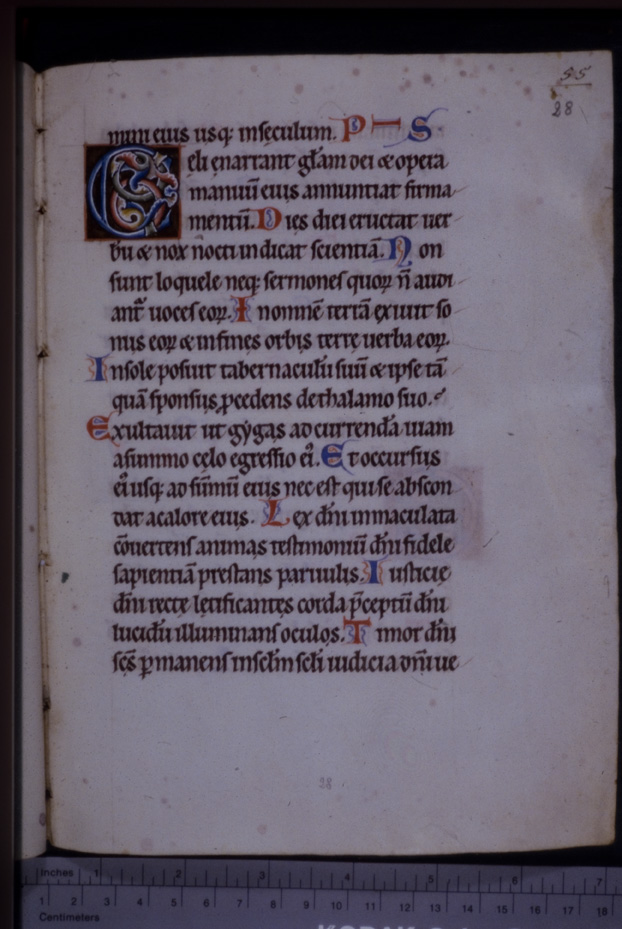 55
28
mini eius usq; in seculum. P S
Celi enarrant gl̃am dei & opera
manuũ eius annuntiat firma
mentũ. Dies diei eructat uer
bũ & nox nocti indicat scientiã. Non
sunt loquele neq; sermones quoꝝ ñ audi
ant̃ uoces eoꝝ. In omnẽ terrã exiuit so
nus eoꝝ & in fines orbis terre uerba eoꝝ.
In sole posuit tabernaculũ suũ & ipse tã
quã sponsus ꝓcedens de thalamo suo.
Exultauit ut gygas ad currendã uiam
a summo celo egressio ei᷒. Et occursus
ei᷒ usq; ad sũmũ eius nec est qui se abscon
dat a calore eius. Lex dñi inmaculata
cõuertens animas testimoniũ dñi fidele
sapientiã prestans paruulis. Iusticie
dñi recte letificantes corda p̃ceptũ dñi
lucidũ illuminans oculos. Timor dñi
sc̃s ꝑmanens in sclm̃ scli iudicia dñi ue
28
Inches 1 2 3 4 5 6 7
1 2 3 4 5 6 7 8 9 10 11 12 13 14 15 16 17 18
Centimeters